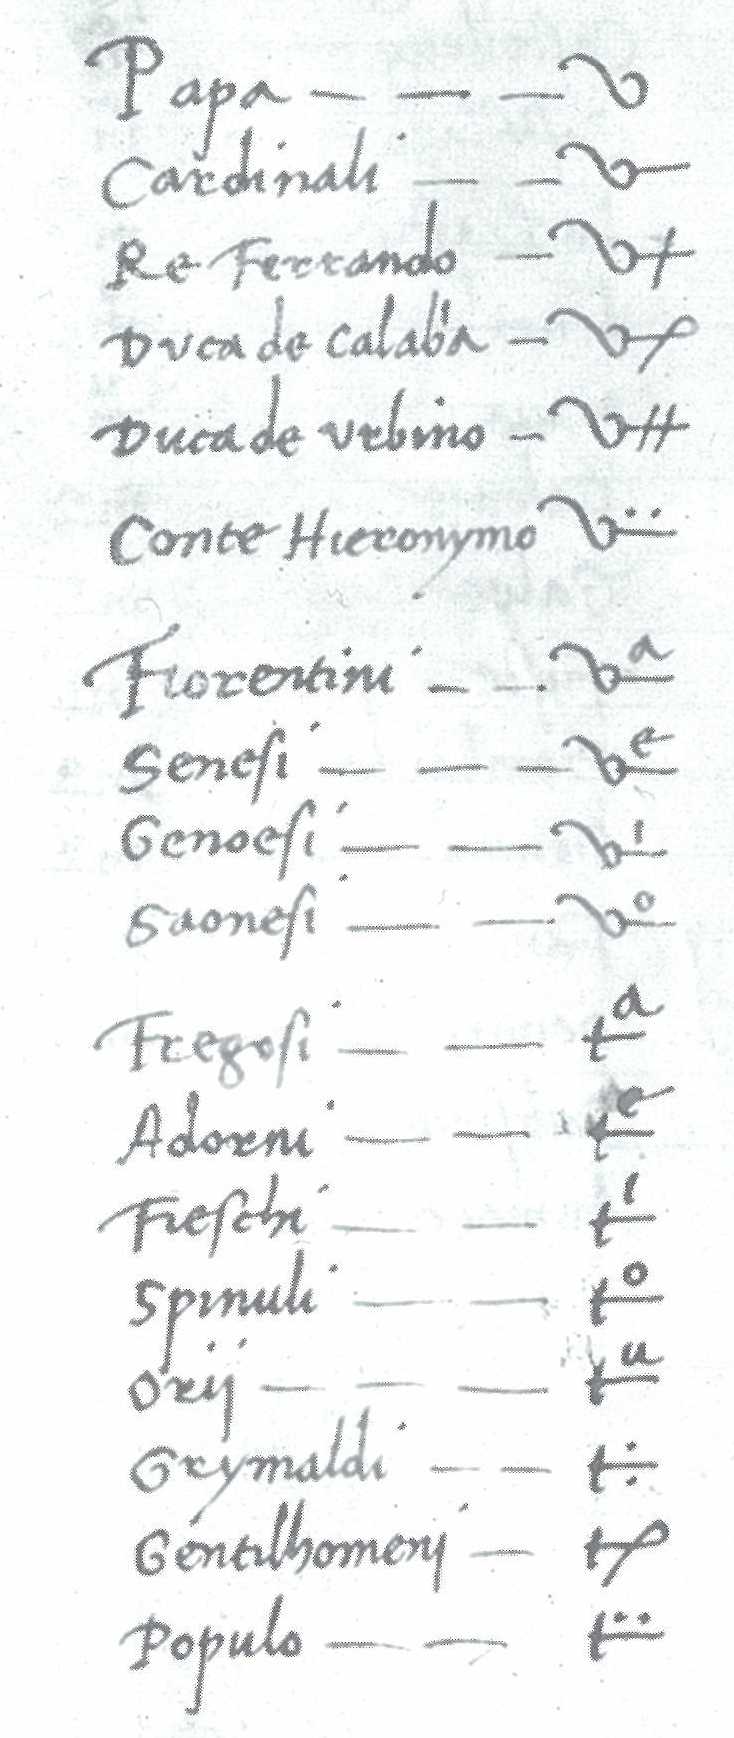 Papa
Cardinali
Re Ferrando
Duca de Calab'a
Duca de Urbino
Conte Hieronymo
Fiorentini a
Senesi e
Genoesi i
Saonesi o
Fregosi t a
Adorni t e
Fieschi t i
Spinuli t o
Orij t u
Grymaldi t
Gentilhomenj t
Populo t